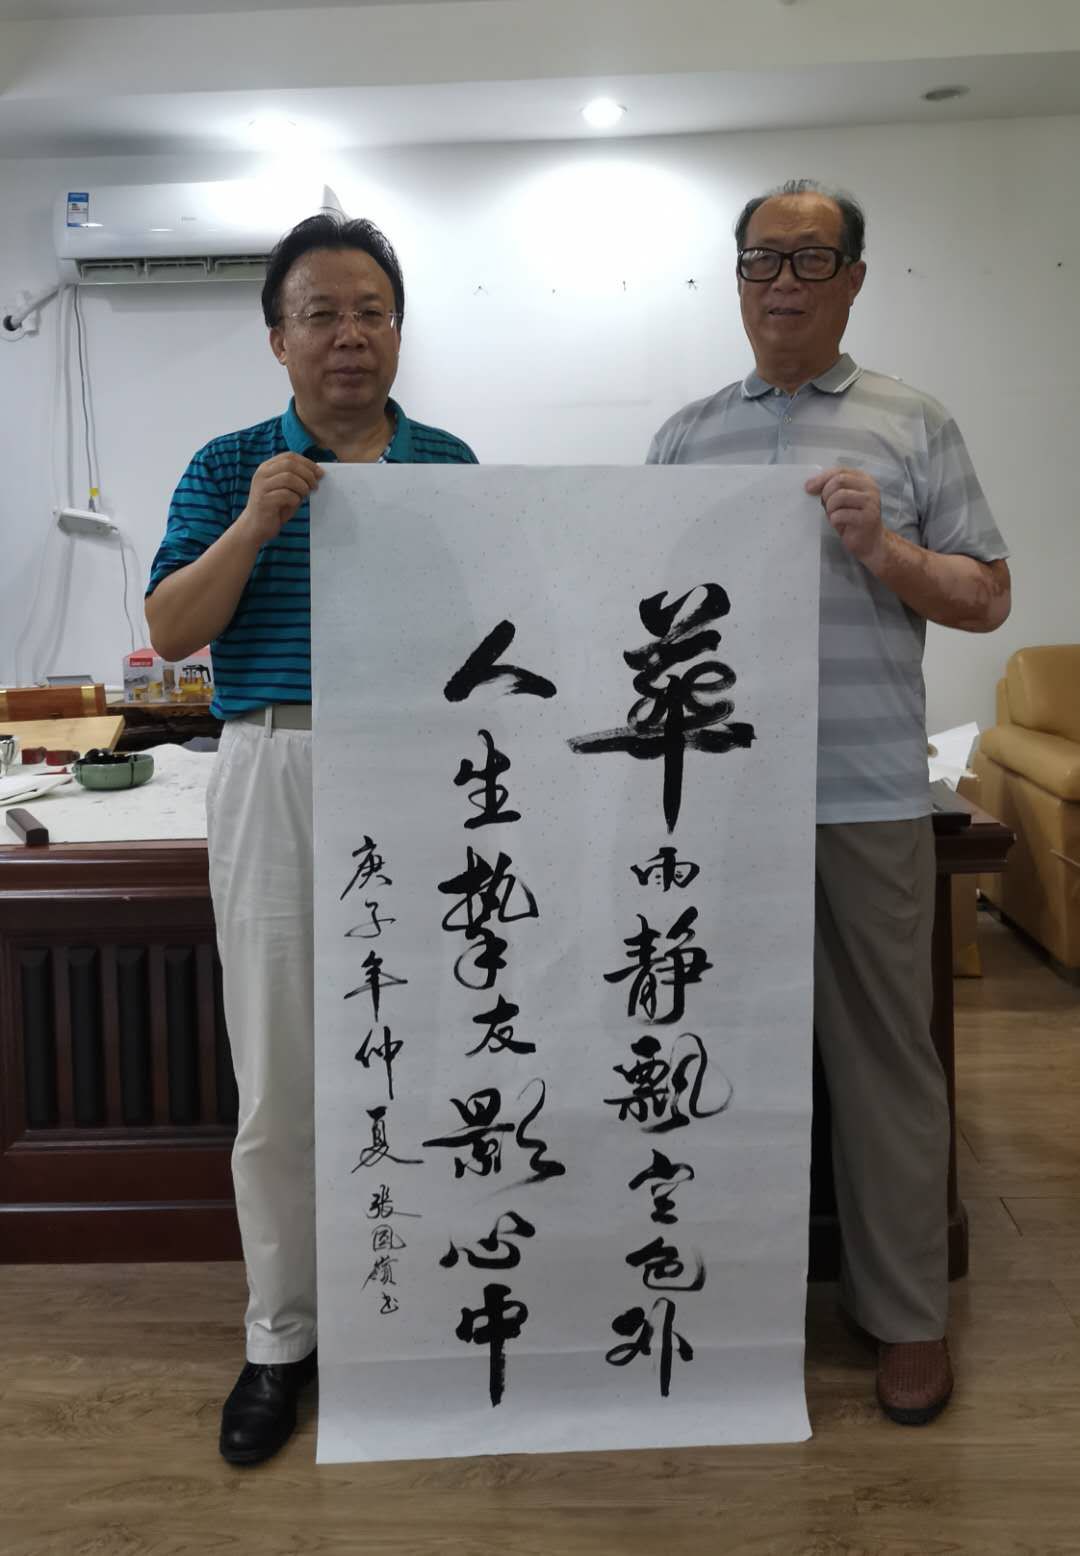 華雨静飘空色外
人生挚友影心中
庚子年仲夏 张国嶺书
Haier